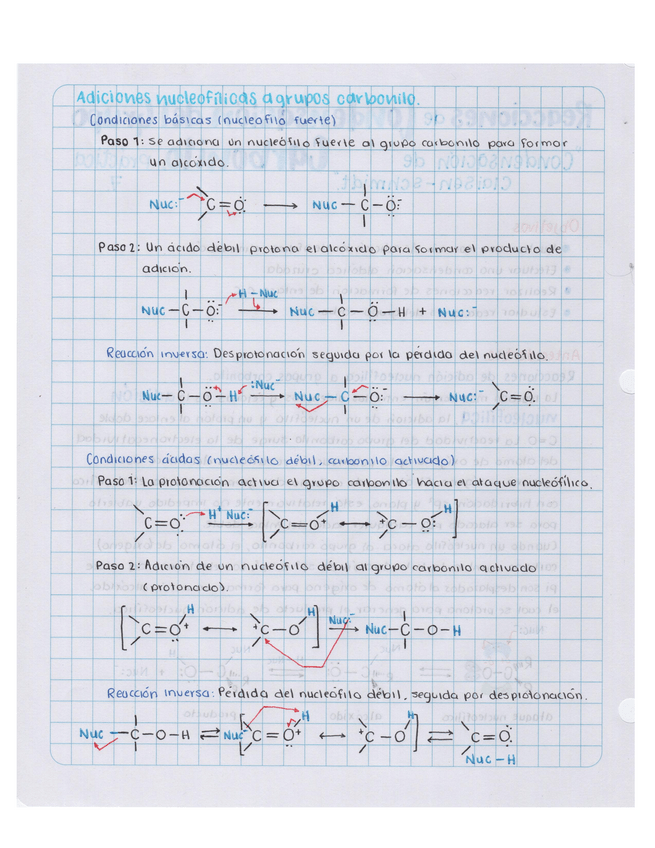 Adiciones nucleofílicas a grupos carbonilo.
Condiciones básicas (nucleofilo fuerte)
Paso 1: Se adiciona un nucleófilo fuerte al grupo carbonilo para formar
un alcóxido.
Nuc:⁻ C=O Nuc–C–O:⁻
Paso 2: Un ácido débil protona el alcóxido para formar el producto de
adición.
Nuc–C–O:⁻ H–Nuc Nuc–C–O–H + Nuc:⁻
Reacción inversa: Desprotonación seguida por la pérdida del nucleófilo.
Nuc–C–O–H :Nuc⁻ Nuc–C–O:⁻ Nuc:⁻ C=O
Condiciones ácidas (nucleófilo débil, carbonilo activado)
Paso 1: La protonación activa el grupo carbonilo hacia el ataque nucleofílico.
C=O H⁺ Nuc:⁻ [C=O⁺–H ↔ ⁺C–O–H]
Paso 2: Adición de un nucleófilo débil al grupo carbonilo activado
(protonado).
[C=O⁺–H ↔ ⁺C–O–H] Nuc:⁻ Nuc–C–O–H
Reacción inversa: Pérdida del nucleófilo débil, seguida por desprotonación.
Nuc–C–O–H ⇌ Nuc:⁻ [C=O⁺–H ↔ ⁺C–O–H] ⇌ C=O
Nuc–H